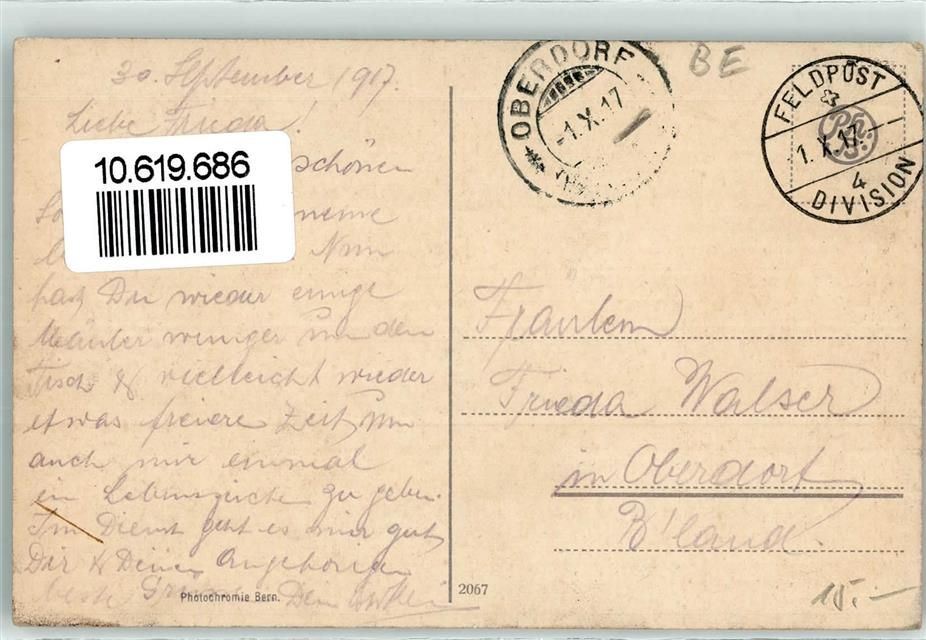 30. September 1917.
Liebe Frieda!
10.619.686
schönen
meine
Nun
hast Du wieder einige
Mäuler weniger um den
Tisch & vielleicht wieder
etwas freiere Zeit um
auch mir einmal
ein Lebenszeichen zu geben.
Im Dienst geht es mir gut
Dir & Deinen Angehörigen
beste Grüsse Dein
Photochromie Bern.
2067
BE
OBERDORF
-1.X.17
FELDPOST
1.X.17
4
DIVISION
Ph. B.
Fräulein
Frieda Walser
in Oberdorf
B'land.
15.-